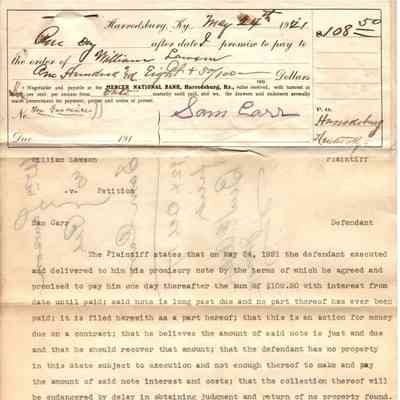 Harrodsburg, Ky. May 24th 1921 $108.50
One day after date I promise to pay to
the order of William Lawson
One Hundred and Eight & 50/100 Dollars
Negotiable and payable at the MERCER NATIONAL BANK, Harrodsburg, Ky., value received, with interest at
per cent. per annum from date until paid, and we, the drawers and endorsers severally
waive presentment for payment, protest and notice of protest.
No. Sam Carr P. O. Harrodsburg
Due 191 Kentucky
William Lawson Plaintiff
v. Petition
Sam Carr Defendant
The Plaintiff states that on May 24, 1921 the defendant executed
and delivered to him his promissory note by the terms of which he agreed and
promised to pay him one day thereafter the sum of $108.50 with interest from
date until paid; said note is long past due and no part thereof has ever been
paid; it is filed herewith as a part hereof; that this is an action for money
due on a contract; that he believes the amount of said note is just and due
and that he should recover that amount; that the defendant has no property
in this State subject to execution and not enough thereof to make and pay
the amount of said note interest and costs; that the collection thereof will
be endangered by delay in obtaining judgment and return of no property found.